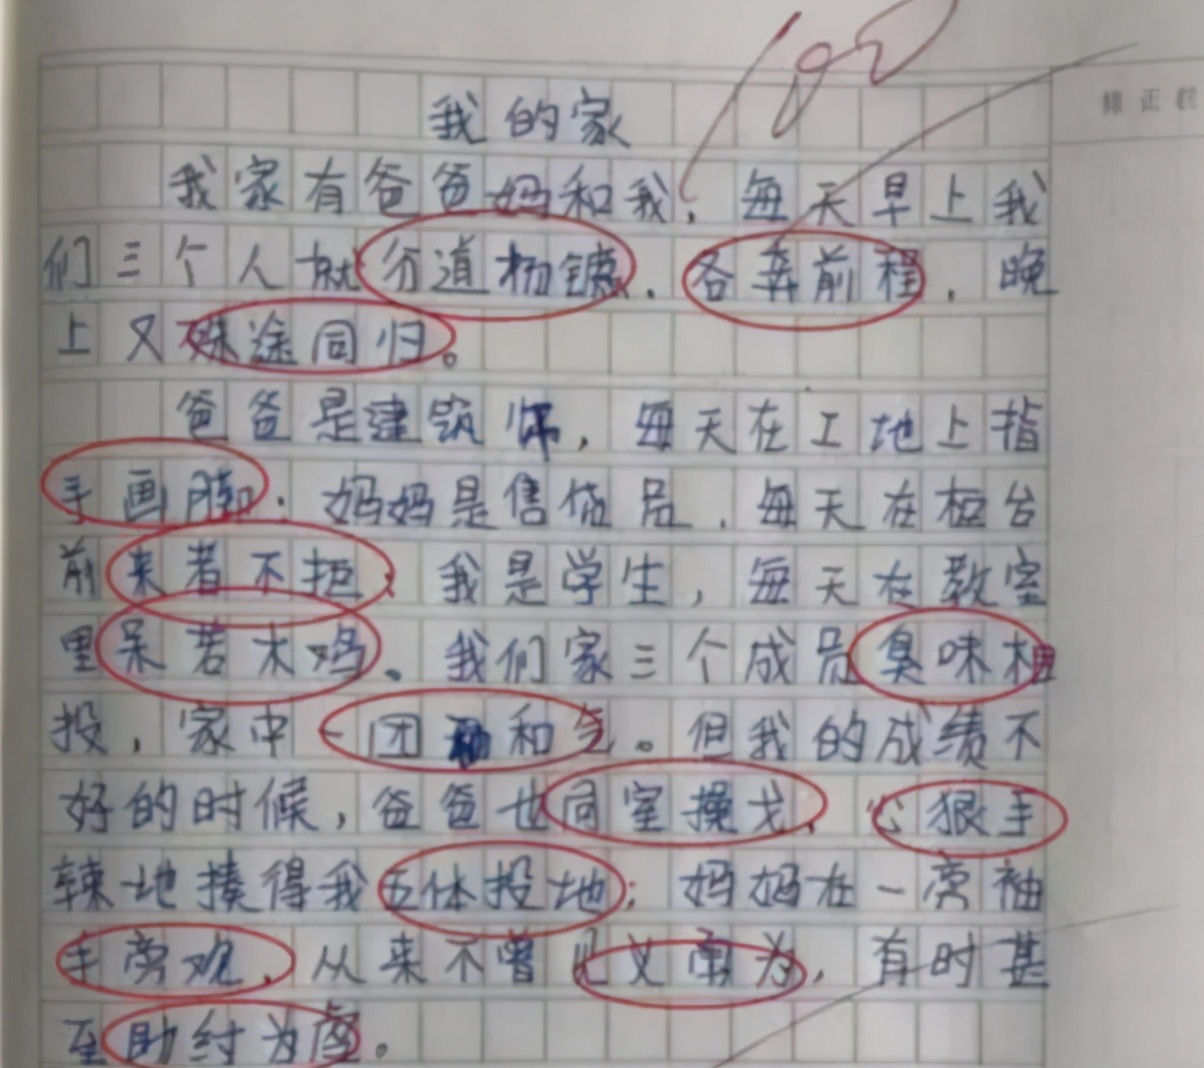 100
我的家
修正栏
我家有爸爸妈和我，每天早上我
们三个人就分道扬镳，各奔前程，晚
上又殊途同归。
爸爸是建筑师，每天在工地上指
手画脚；妈妈是售货员，每天在柜台
前来者不拒；我是学生，每天在教室
里呆若木鸡。我们家三个成员臭味相
投，家中一团和气。但我的成绩不
好的时候，爸爸也同室操戈，心狠手
辣地揍得我五体投地；妈妈在一旁袖
手旁观，从来不曾见义勇为，有时甚
至助纣为虐。